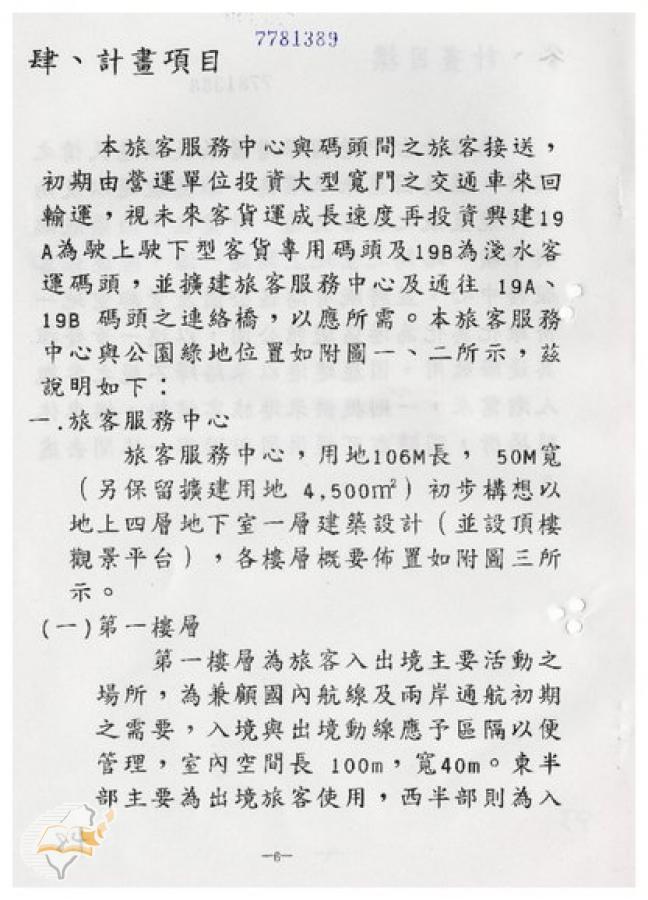 7781389
肆、計畫項目
本旅客服務中心與碼頭間之旅客接送，
初期由營運單位投資大型寬門之交通車來回
輸運，視未來客貨運成長速度再投資興建19
A為駛上駛下型客貨專用碼頭及19B為淺水客
運碼頭，並擴建旅客服務中心及通往 19A、
19B 碼頭之連絡橋，以應所需。本旅客服務
中心與公園綠地位置如附圖一、二所示，茲
說明如下：
一.旅客服務中心
旅客服務中心，用地106M長， 50M寬
（另保留擴建用地 4,500㎡）初步構想以
地上四層地下室一層建築設計（並設頂樓
觀景平台），各樓層概要佈置如附圖三所
示。
(一)第一樓層
第一樓層為旅客入出境主要活動之
場所，為兼顧國內航線及兩岸通航初期
之需要，入境與出境動線應予區隔以便
管理，室內空間長 100m，寬40m。東半
部主要為出境旅客使用，西半部則為入
—6—